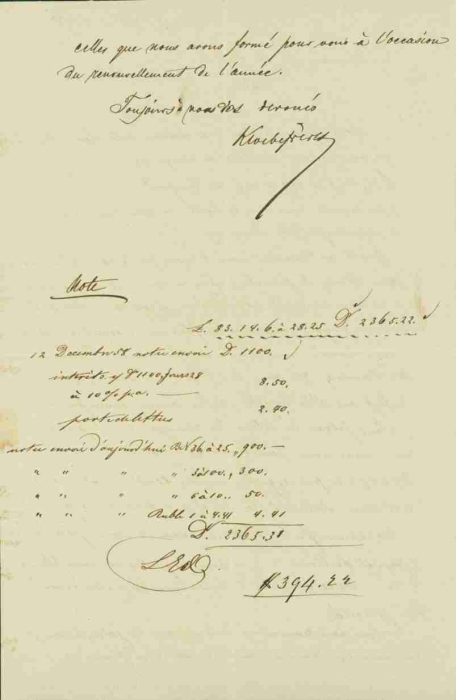 celles que nous avons formé pour vous à l'occasion
du renouvellement de l'année.
Toujours vos dévoués
Note
L. 83.14.6. à 28.25 D. 2365.22.
12 Decembre 58 notre envoi D. 1100.
intérêts s/ D 1100 Jours 28
à 10 % p.a. — 8.50.
porte de lettres 2.40.
notre envoi d'aujourd'hui 36 à 25., 900.—
" " " " 3 à 100., 300.
" " " " 6 à 10.. 50.
" " " Ruble 1 à 4.41 4.41
D. 2365.31
S.E&O
394.22